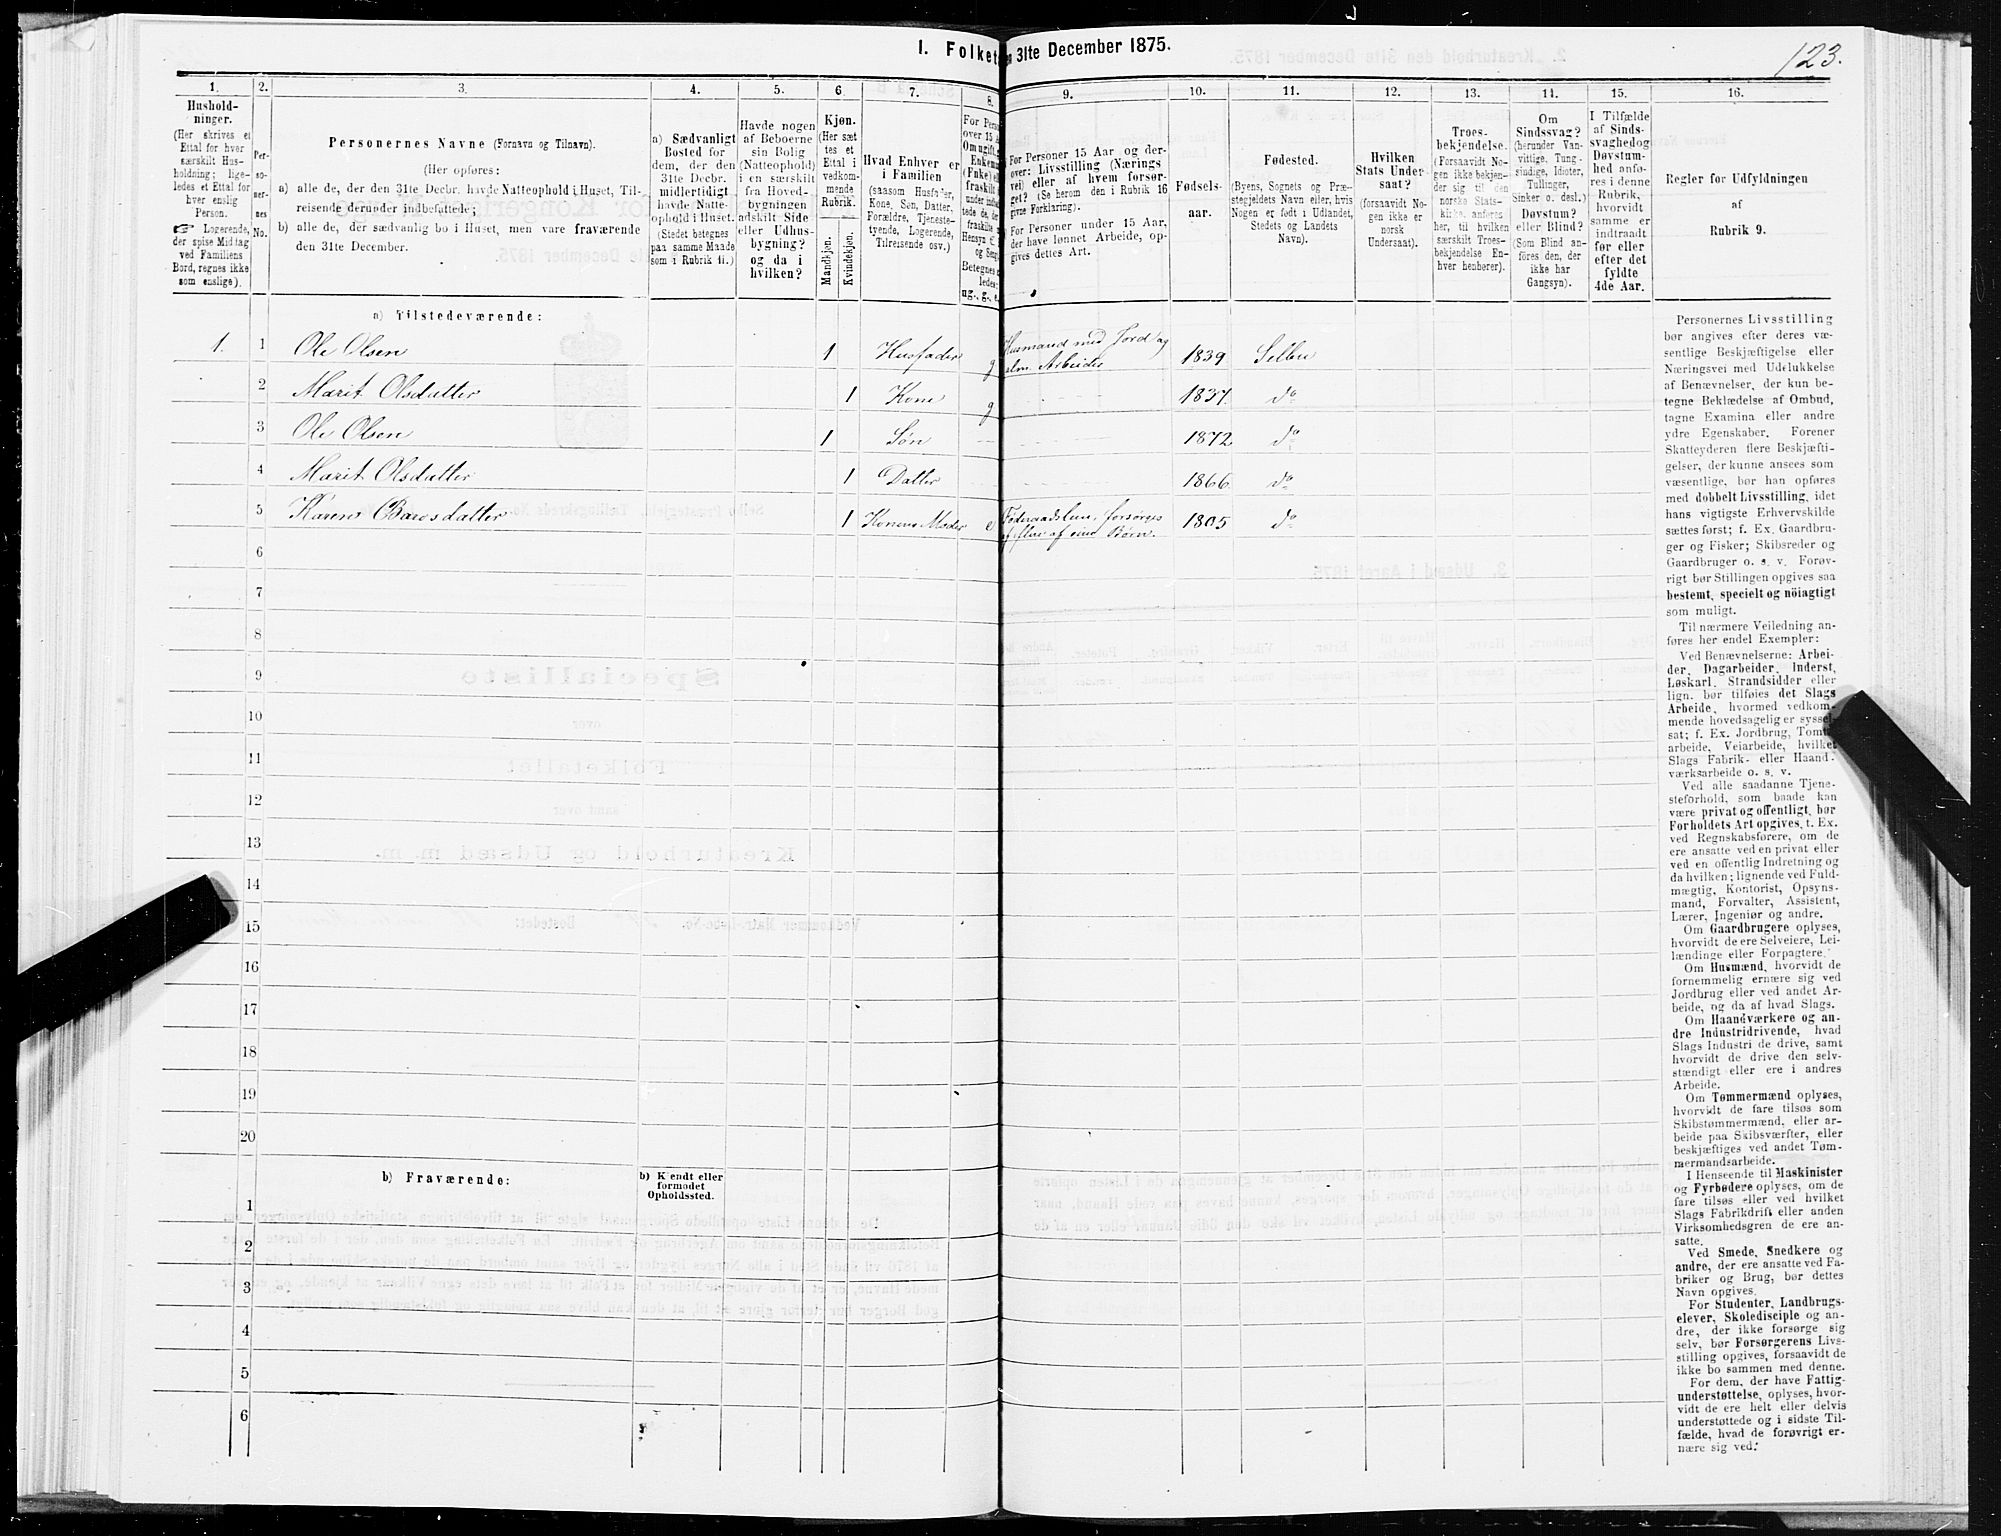 I. Folket
en 31te December 1875.
123.
1.
2.
3.
4.
5.
6
7.
8.
9.
10.
11.
12.
13.
14.
15.
16.
Hushold-
ninger.
(Her skrives et
Ettal for hver
særskilt Hus-
holdning; lige-
ledes et Ettal for
hver enslig
Person.
☞ Logerende,
der spise Middag
ved Familiens
Bord, regnes ikke
som enslige).
Per-
so-
ner-
nes
No.
Personernes Navne (Fornavn og Tilnavn).
(Her opføres:
a) alle de, der den 31te Decbr. havde Natteophold i Huset, Til-
reisende derunder indbefattede;
b) alle de, der sædvanlig bo i Huset, men vare fraværende
den 31te December.
a) Sædvanligt
Bosted for
dem, der den
31te Decbr.
midlertidigt
havde Natte-
ophold i Huset.
(Stedet betegnes
paa samme Maade
som i Rubrik 11.)
Havde nogen
af Beboerne
sin Bolig
(Natteophold)
i en særskilt
fra Hoved-
bygningen
adskilt Side
eller Udhus-
bygning?
og da i
hvilken?
Kjøn.
(Her sæt
tes et
Ettal i
vedkom-
mende
Rubrik.
Mandkjøn.
Kvindekjøn.
Hvad Enhver er
i Familien
(saasom Husfader,
Kone, Søn, Datter,
Forældre, Tjeneste-
tyende, Logerende,
Tilreisende osv.)
For Perso
over 15 A
Om ugift, g
Enkem
(Enke) el
fraskilt
under indbe
tede de, der
fraskilte
Hensyn t
og Seng
Betegnes
ledes:
ug., g., e.
For Personer 15 Aar og der-
over: Livsstilling (Nærings
vei) eller af hvem forsør-
get? (Se herom den i Rubrik 16
givne Forklaring).
For Personer under 15 Aar,
der have lønnet Arbeide, op-
gives dettes Art.
Fødsels-
aar.
Fødested.
(Byens, Sognets og Præ-
stegjeldets Navn eller, hvis
Nogen er født i Udlandet,
Stedets og Landets
Navn).
Hvilken
Stats Under
saat?
(forsaavidt No-
gen ikke er
norsk
Undersaat).
Troes-
bekjendelse.
(Forsaavidt No-
gen ikke bekjen-
der sig til den
norske Stats-
kirke, anføres
her, til hvilken
særskilt Troes-
bekjendelse En-
hver henhører).
Om
Sindssvag?
(herunder Van-
vittige, Tung-
sindige, Idioter,
Tullinger,
Sinker o. desl.)
Døvstum?
eller Blind?
(Som Blind an-
føres den, der
ikke har
Gangsyn).
I Tilfælde
af Sinds-
svaghed og
Døvstum-
hed anfø-
res i denne
Rubrik,
hvorvidt
samme er
indtraadt
før eller
efter det
fyldte
4de Aar.
Regler for Udfyldningen
af
Rubrik 9.
a) Tilstedeværende:
1. 1 Ole Olsen 1 Husfader g Husmand med Jord og alm. Arbeider 1839 Selbu
2 Marit Olsdatter 1 Kone g 1837. do
3 Ole Olsen 1 Søn 1872 do
4 Marit Olsdatter 1 Datter 1866. do
5 Karen Baresdatter 1 Konens Moder e 1805 do
6
7
8
9
10
11
12
13
14
15
16
17
18
19
20
b) Fraværende:
b) Kjendt eller
formodet
Opholdssted.
1
2
3
4
5
6
Personernes Livsstilling
bør angives efter deres væ-
sentlige Beskjæftigelse eller
Næringsvei med Udelukkelse
af Benævnelser, der kun be-
tegne Beklædelse af Ombud,
tagne Examina eller andre
ydre Egenskaber. Forener
Skatteyderen flere Beskjæfti-
gelser, der kunne ansees som
væsentlige, bør han opføres
med dobbelt Livsstilling, idet
hans vigtigste Erhvervskilde
sættes først; f. Ex. Gaardbru-
ger og Fisker; Skibsreder og
Gaardbruger o. s. v. Forøv-
rigt bør Stillingen opgives saa
bestemt, specielt og nöiagtigt
som muligt.
Til nærmere Veiledning an-
føres her endel Exempler:
Ved Benævnelserne: Arbei-
der, Dagarbeider, Inderst,
Løskarl, Strandsidder eller
lign. bør tilføies det Slags
Arbeide, hvormed vedkom-
mende hovedsagelig er syssel-
sat; f. Ex. Jordbrug, Tomt-
arbeide, Veiarbeide, hvilket
Slags Fabrik- eller Haand-
værksarbeide o. s. v.
Ved alle saadanne Tjene-
steforhold, som baade kan
være privat og offentligt, bør
Forholdets Art opgives, t. Ex.
ved Regnskabsførere, om de
ere ansatte ved en privat eller
ved en offentlig Indretning og
da hvilken; lignende ved Fuld-
mægtig, Kontorist, Opsyns-
mand, Forvalter, Assistent,
Lærer, Ingeniør og andre.
Om Gaardbrugere oplyses,
hvorvidt de ere Selveiere, Lei-
lændinge eller Forpagtere.
Om Husmænd, hvorvidt de
fornemmelig ernære sig ved
Jordbrug eller ved andet Ar-
beide, og da af hvad Slags.
Om Haandværkere og an-
dre Industridrivende, hvad
Slags Industri de drive, samt
hvorvidt de drive den selv-
stændigt eller ere i andres
Arbeide.
Om Tømmermænd oplyses,
hvorvidt de fare tilsøs som
Skibstømmermænd, eller ar-
beide paa Skibsværfter, eller
beskjæftiges ved andet Tøm-
mermandsarbeide.
I Henseende til Maskinister
og Fyrbødere oplyses, om de
fare tilsøs eller ved hvilket
Slags Fabrikdrift eller anden
Virksomhedsgren de ere an-
satte.
Ved Smede, Snedkere og
andre, der ere ansatte ved Fa-
briker og Brug, bør dettes
Navn opgives.
For Studenter, Landbrugs-
elever, Skoledisciple og an-
dre, der ikke forsørge sig
selv, bør Forsørgerens Livs-
stilling opgives, forsaavidt de
ikke bo sammen med denne.
For dem, der have Fattig-
understøttelse, oplyses, hvor-
vidt de ere helt eller delvis
understøttede og i sidste Til-
fælde, hvad de forøvrigt er-
nære sig ved.